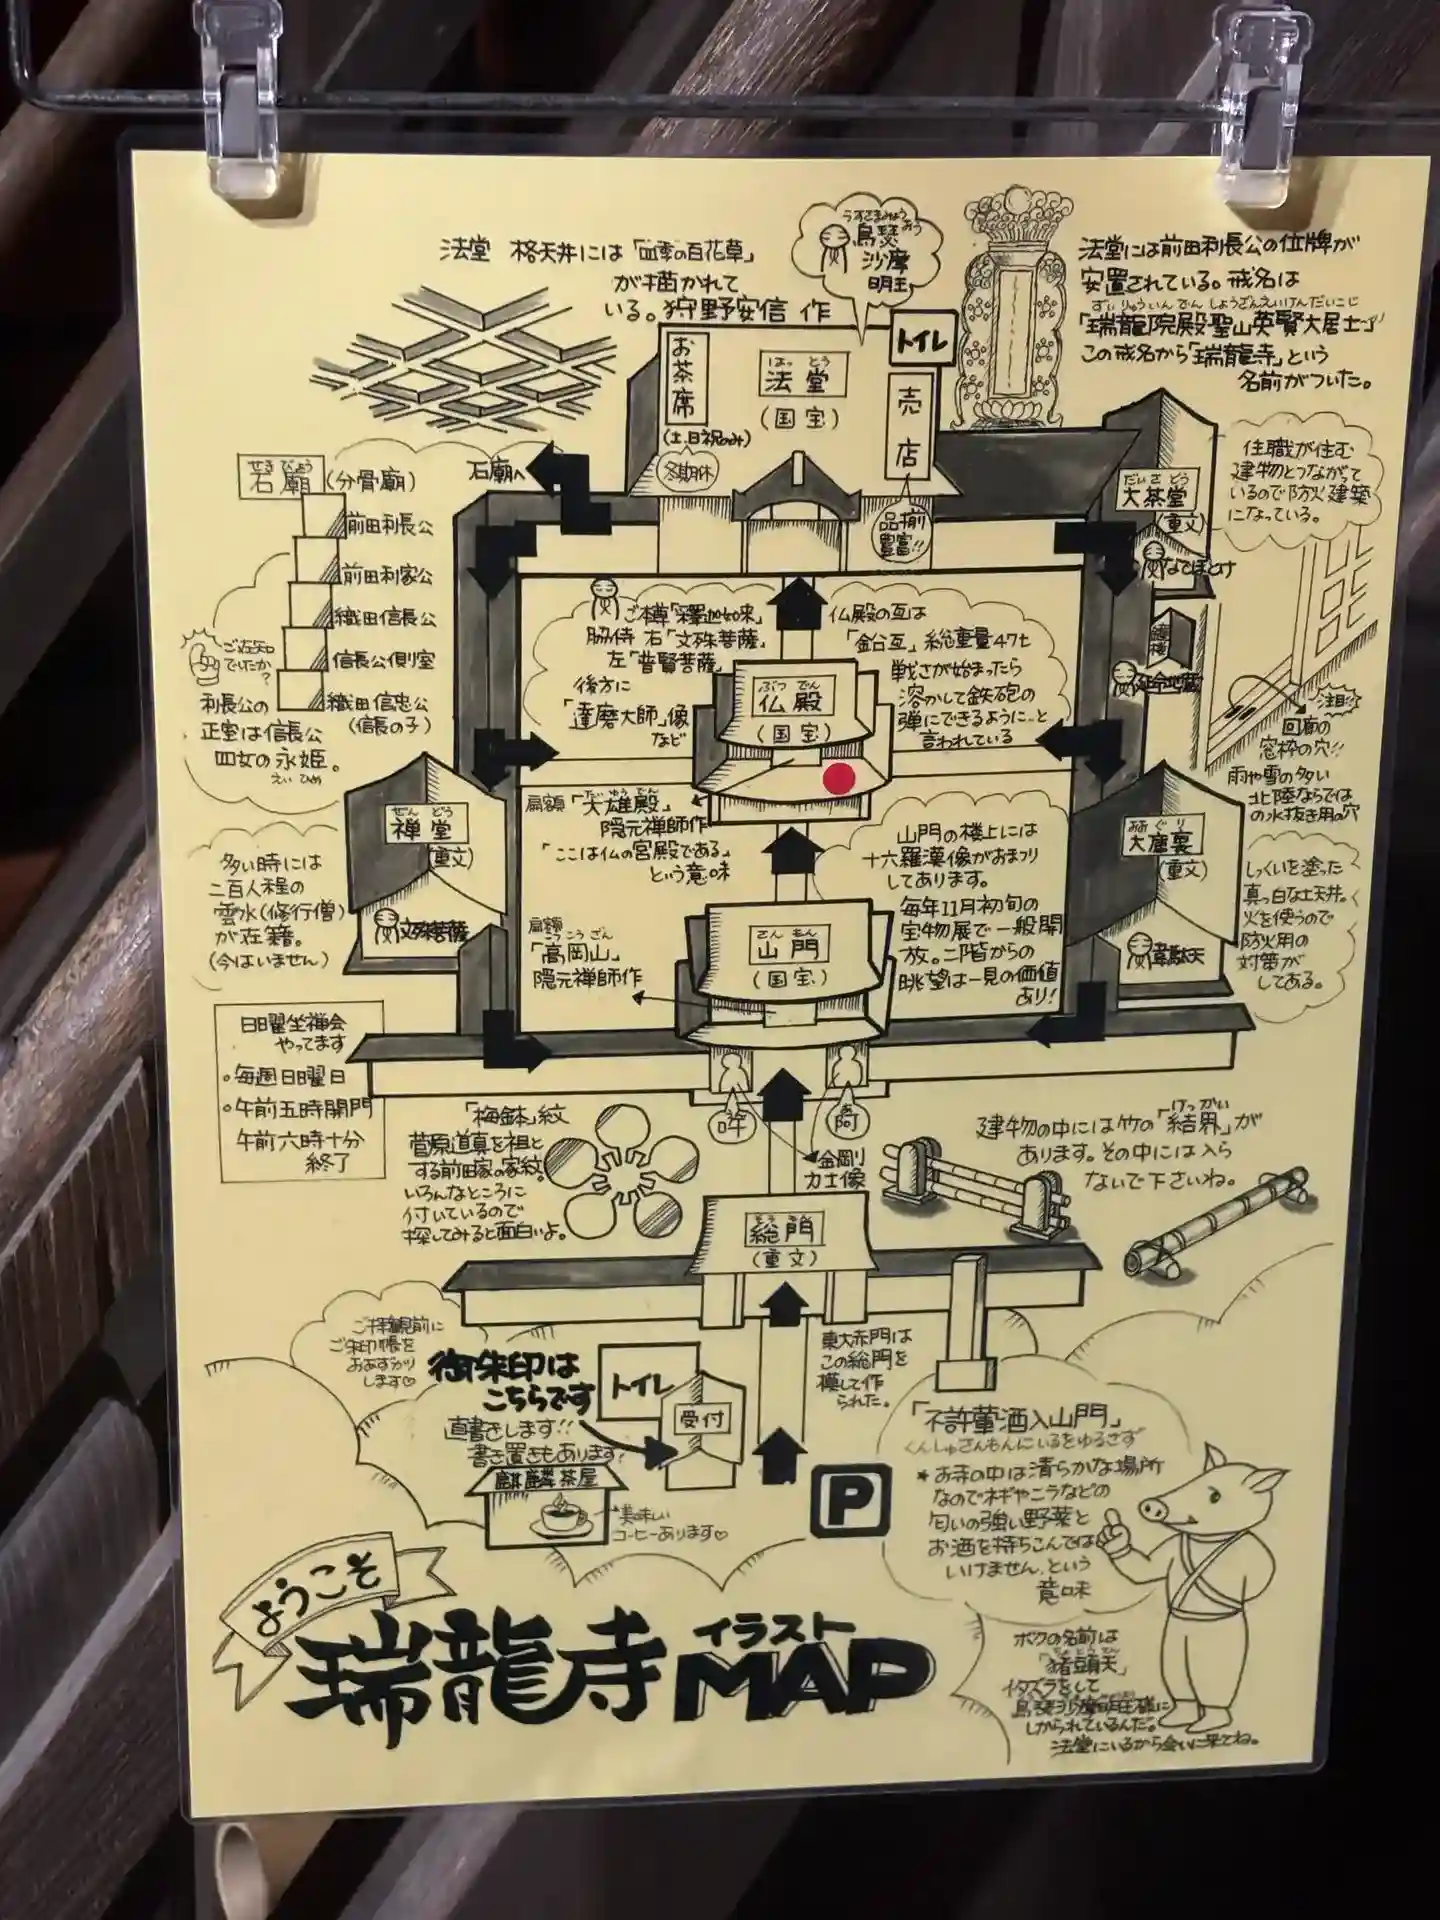 法堂 格天井には「四季の百花草」
が描かれて
いる。狩野安信 作
うすさまみょうおう
烏瑟
沙摩
明王
法堂には前田利長公の位牌が
安置されている。戒名は
ずいりゅういんでんしょうざんえいけんだいこじ
「瑞龍院殿聖山英賢大居士」
この戒名から「瑞龍寺」という
名前がついた。
トイレ
お茶席
(土、日祝のみ)
冬期休
はっとう
法堂
(国宝)
売店
品揃
豊富!!
石廟へ
せきびょう
石廟
(分骨廟)
前田利長公
前田利家公
織田信長公
信長公側室
織田信忠公
(信長の子)
ご存知
でしたか?
利長公の
正室は信長公
四女の永姫。
えいひめ
だいさどう
大茶堂
(重文)
なでぼとけ
住職が住む
建物とつながって
いるので防火建築
になっている。
鐘楼
延命地蔵
注目!!
回廊の
窓枠の穴!!
雨や雪の多い
北陸ならでは
の水抜き用の穴
ご本尊「釋迦如来」
脇侍 右「文殊菩薩」
左「普賢菩薩」
後方に
「達磨大師」像
など
ぶつでん
仏殿
(国宝)
仏殿の瓦は
「鉛瓦」総重量47t
戦さが始まったら
溶かして鉄砲の
弾にできるように…と
言われている
扁額「大雄殿」
だいゆうでん
隠元禅師作
「ここは仏の宮殿である」
という意味
ぜんどう
禅堂
(重文)
文殊菩薩
多い時には
二百人程の
雲水(修行僧)
が在籍。
(今はいません)
扁額
こうこうざん
「高岡山」
隠元禅師作
さんもん
山門
(国宝)
山門の楼上には
十六羅漢像がおまつり
してあります。
毎年11月初旬の
宝物展で一般開
放。二階からの
眺望は一見の価値
あり!
おおぐり
大庫裏
(重文)
韋駄天
しっくいを塗った
真っ白な土天井。
火を使うので
防火用の
対策が
してある。
日曜坐禅会
やってます
・毎週日曜日
・午前五時開門
午前六時十分
終了
吽
阿
金剛
力士像
「梅鉢」紋
菅原道真を祖と
する前田家の家紋。
いろんなところに
付いているので
探してみると面白いよ。
建物の中には竹の「結界」が
けっかい
あります。その中には入ら
ないで下さいね。
そうもん
総門
(重文)
ご拝観前に
ご朱印帳を
おあずかり
します♡
御朱印は
こちらです
直書きします!!
書き置きもあります!
トイレ
受付
東大赤門は
この総門を
模して作
られた。
麒麟茶屋
美味しい
コーヒーあります♡
P
「不許葷酒入山門」
くんしゅさんもんにいるをゆるさず
*お寺の中は清らかな場所
なのでネギやニラなどの
匂いの強い野菜と
お酒を持ちこんでは
いけません、という
意味
ボクの名前は
ちょとうてん
「猪頭天」
イタズラをして
烏瑟沙摩明王様に
しかられているんだ。
法堂にいるから会いに来てね。
ようこそ
瑞龍寺イラストMAP